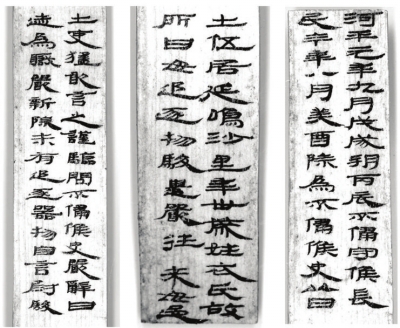 河平元年九月戊戌朔丙辰不侵守候長
民今年八月癸酉除為不侵候史以日
士伍居延鳴沙里年卅歲姓衣氏故
所曰毋追逐物駿遺嚴往來毋過
士吏猛敢言之謹驗問不侵候史嚴辭曰
迹為職嚴新除未有追逐器物自言尉駿